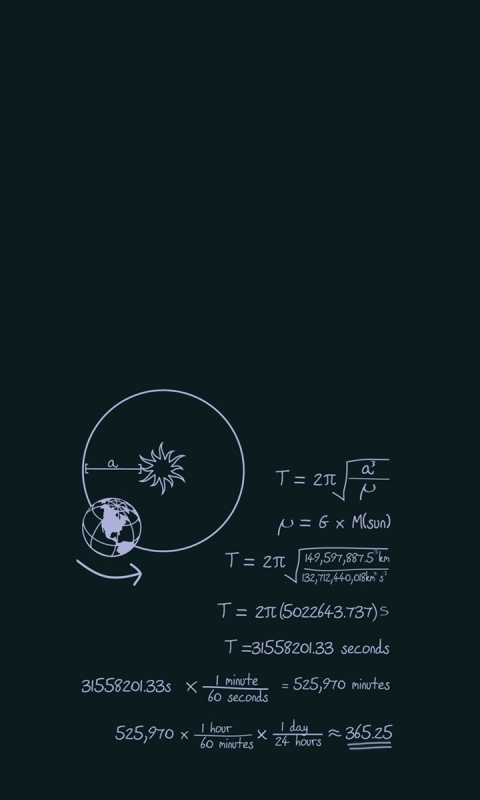 a
T = 2π√(a³/μ)
μ = G x M(sun)
T = 2π√(149,597,887.5³km/132,712,440,018km³ s²)
T = 2π(5022643.737)s
T =31558201.33 seconds
31558201.33s x 1 minute/60 seconds = 525,970 minutes
525,970 x 1 hour/60 minutes x 1 day/24 hours ≈ 365.25